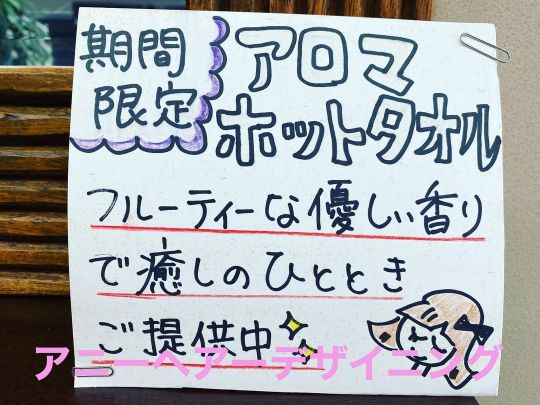 期間
限定
アロマ
ホットタオル
フルーティーな優しい香り
で癒しのひととき
ご提供中
アニーヘアーデザイニング